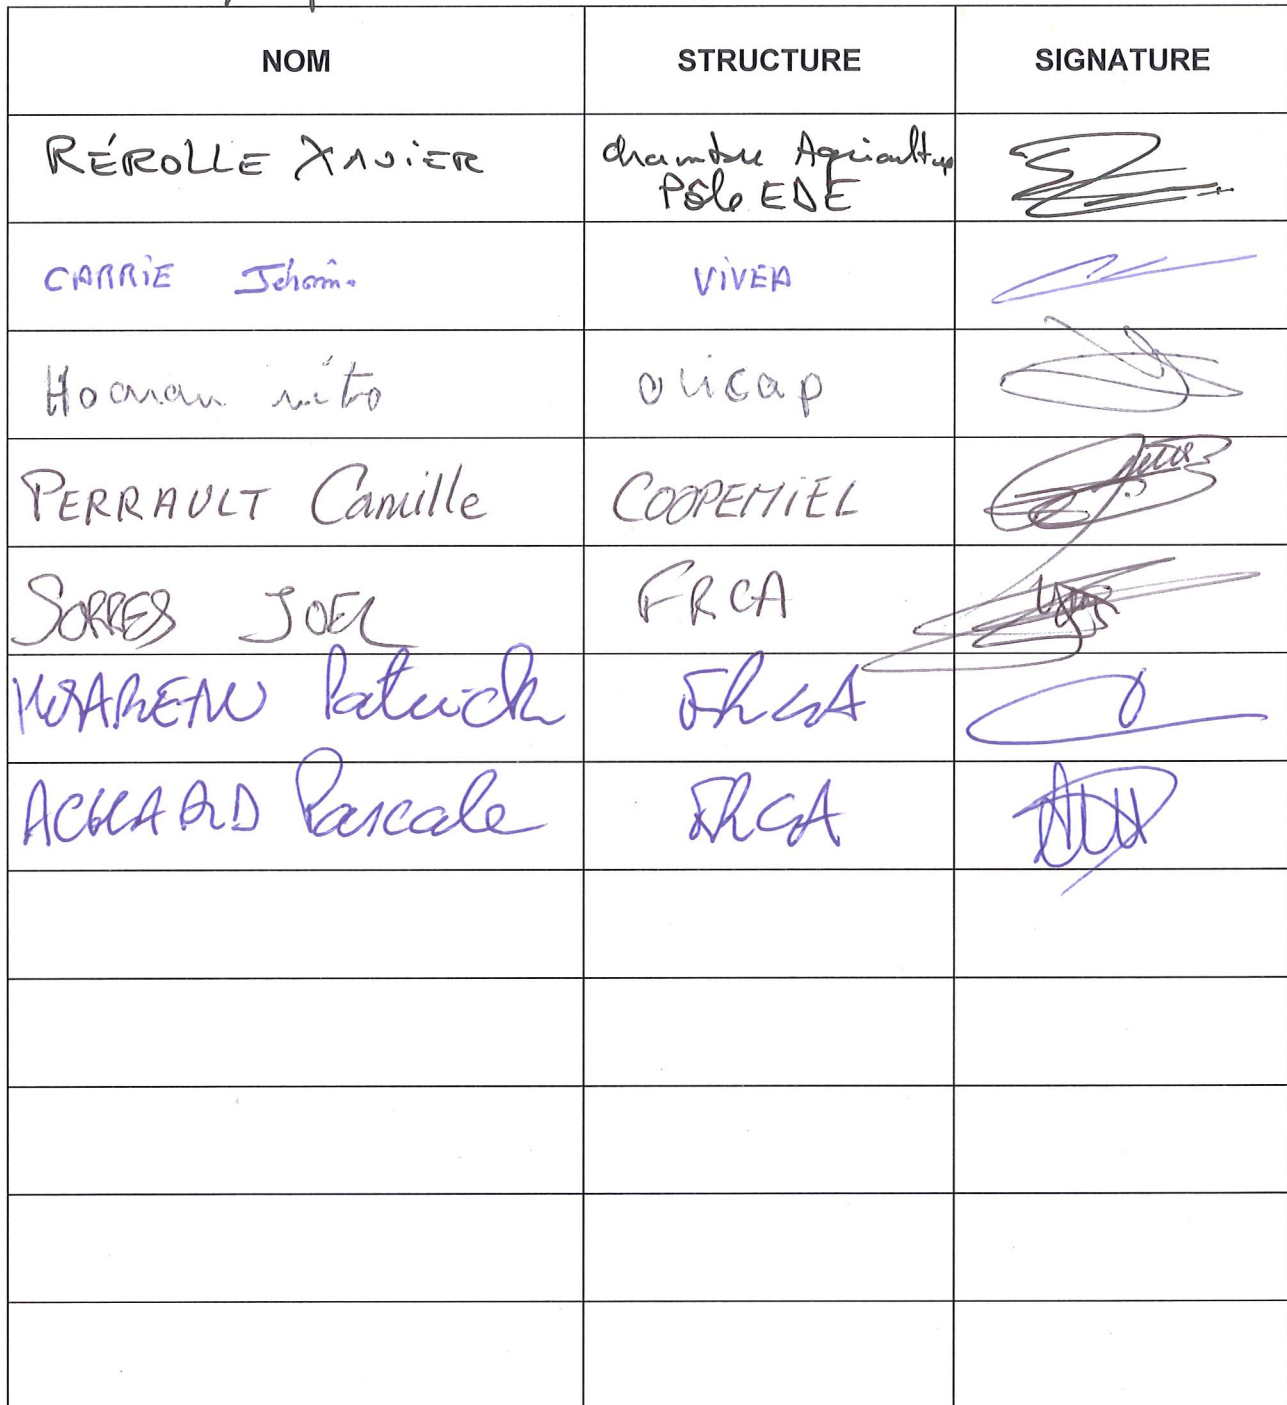 NOM STRUCTURE SIGNATURE
RÉROLLE XAVIER chambre Agriculture
Pôle EDE
CARRIE VIVEA
ovicap
PERRAULT Camille COOPEMIEL
SORRES JOEL FRCA
Patrick FRCA
ACHARD Pascale FRCA